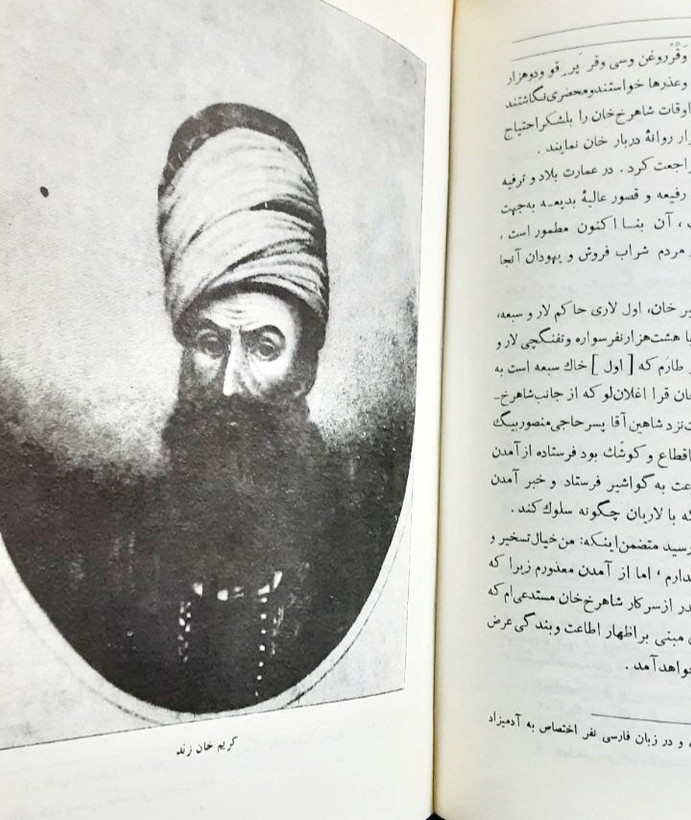 کریم خان زند
وقر روغن وسی وقر قو ودوهزار
وعذرها خواستندومحضری نگاشتند
اوقات شاهرخ‌خان را بلشکراحتیاج
روانهٔ دربار خان نمایند .
اجعت کرد . در عمارت بلاد و ترفیه
رفیعه و قصور عالیهٔ بدیعه به‌جهت
، آن بنا اکنون مطمور است ،
مردم شراب فروش و یهودان آنجا
خان، اول لاری حاکم لار و سبعه،
هشت‌هزارنفرسواره وتفنگچی لار و
طارَم که [ اول ] خاك سبعه است به
قرا اغلان‌لو که از جانب‌شاهرخ‌ـ
نزد شاهین آقا پسر حاجی منصوربیگ
اقطاع و کوشك بود فرستاده ازآمدن
به گواشیر فرستاد و خبر آمدن
که با لاریان چگونه سلوك کند .
متضمن‌اینکه: من‌خیال‌تسخیر و
اما از آمدن معذورم زیرا که
ازسرکار شاهرخ‌خان مستدعی‌ام که
مبنی براظهار اطاعت وبندگی عرض
خواهدآمد .
و در زبان فارسی نفر اختصاص به آدمیزاد